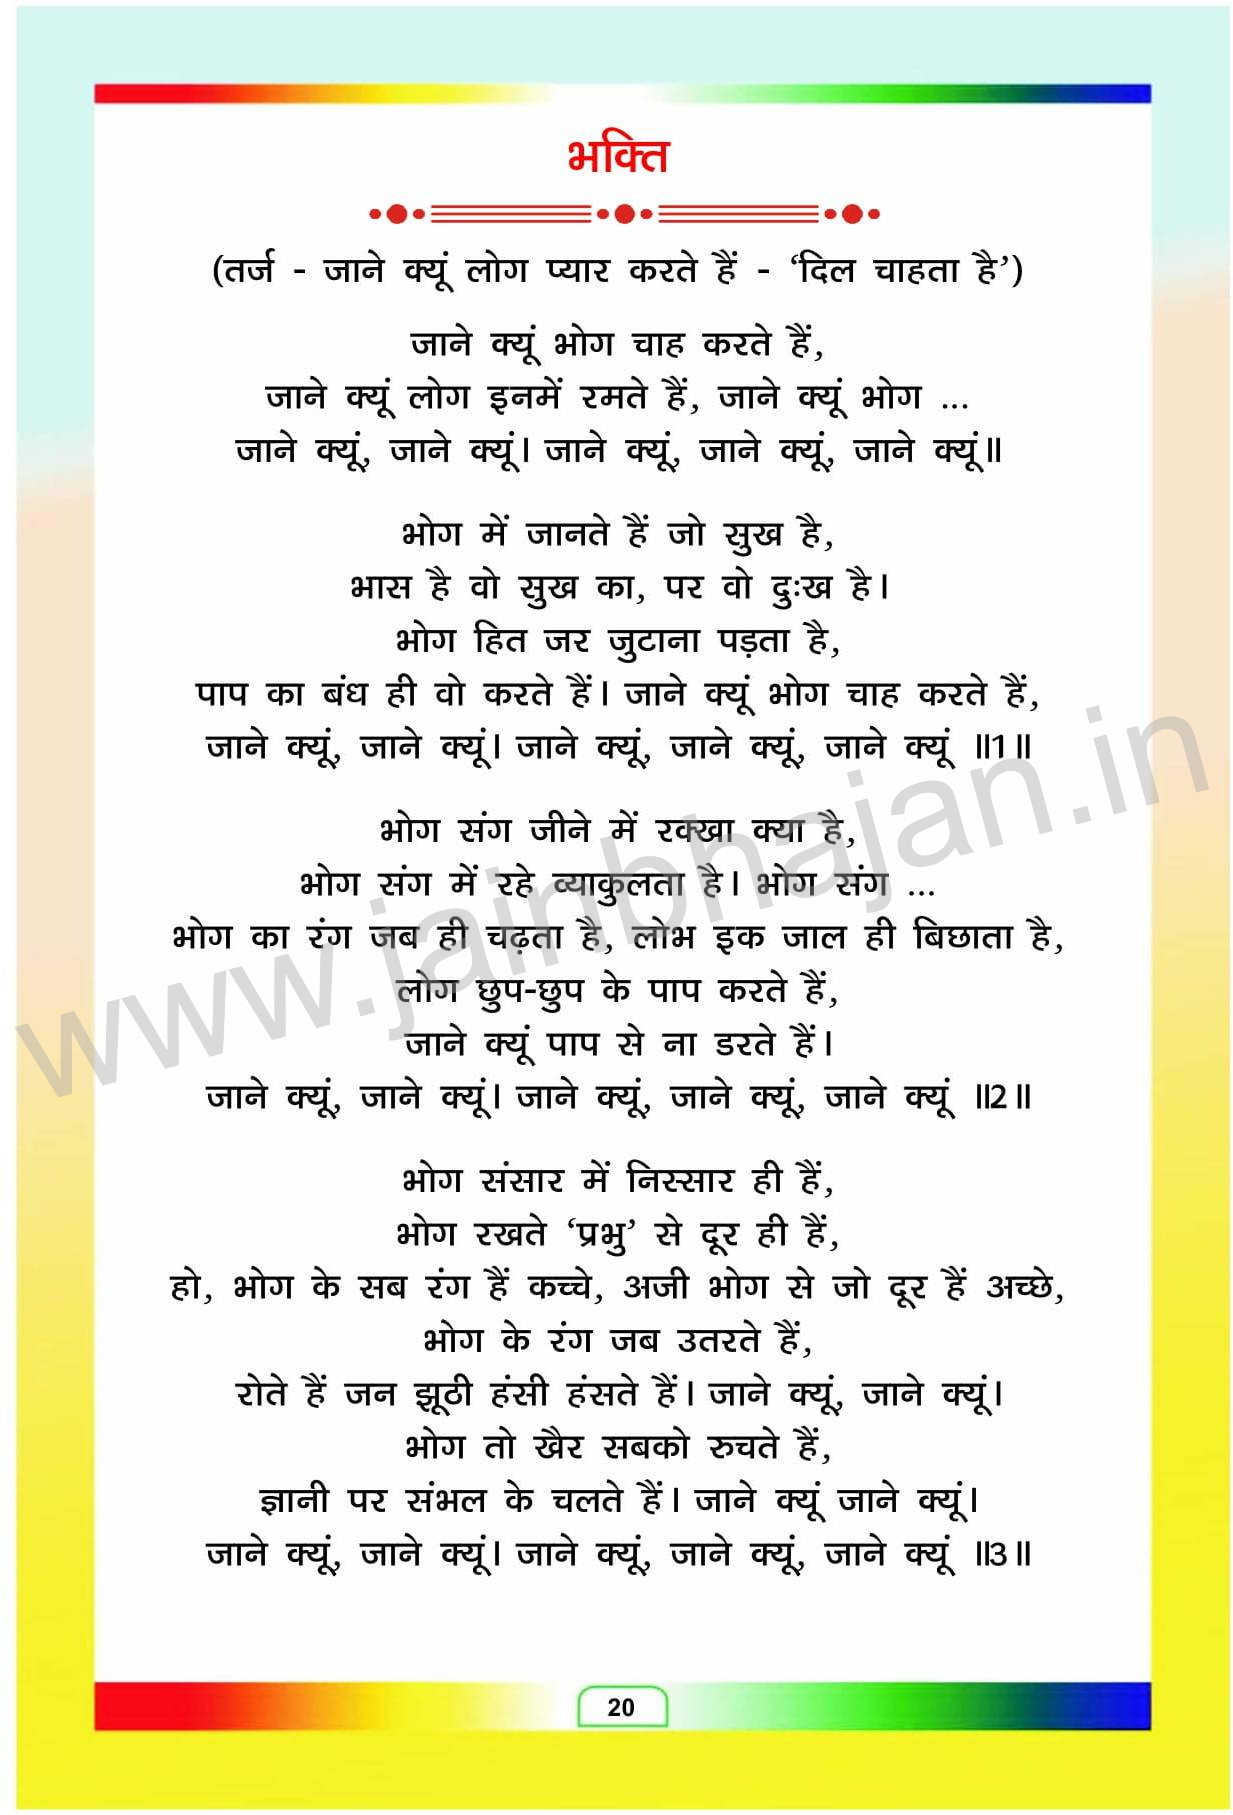 भक्ति
(तर्ज - जाने क्यूं लोग प्यार करते हैं - ‘दिल चाहता है’)
जाने क्यूं भोग चाह करते हैं,
जाने क्यूं लोग इनमें रमते हैं, जाने क्यूं भोग ...
जाने क्यूं, जाने क्यूं। जाने क्यूं, जाने क्यूं, जाने क्यूं॥
भोग में जानते हैं जो सुख है,
भास है वो सुख का, पर वो दुःख है।
भोग हित जर जुटाना पड़ता है,
पाप का बंध ही वो करते हैं। जाने क्यूं भोग चाह करते हैं,
जाने क्यूं, जाने क्यूं। जाने क्यूं, जाने क्यूं, जाने क्यूं ॥1॥
भोग संग जीने में रक्खा क्या है,
भोग संग में रहे व्याकुलता है। भोग संग ...
भोग का रंग जब ही चढ़ता है, लोभ इक जाल ही बिछाता है,
लोग छुप-छुप के पाप करते हैं,
जाने क्यूं पाप से ना डरते हैं।
जाने क्यूं, जाने क्यूं। जाने क्यूं, जाने क्यूं, जाने क्यूं ॥2॥
भोग संसार में निस्सार ही हैं,
भोग रखते ‘प्रभु’ से दूर ही हैं,
हो, भोग के सब रंग हैं कच्चे, अजी भोग से जो दूर हैं अच्छे,
भोग के रंग जब उतरते हैं,
रोते हैं जन झूठी हंसी हंसते हैं। जाने क्यूं, जाने क्यूं।
भोग तो खैर सबको रुचते हैं,
ज्ञानी पर संभल के चलते हैं। जाने क्यूं जाने क्यूं।
जाने क्यूं, जाने क्यूं। जाने क्यूं, जाने क्यूं, जाने क्यूं ॥3॥
www.jainbhajan.in
20